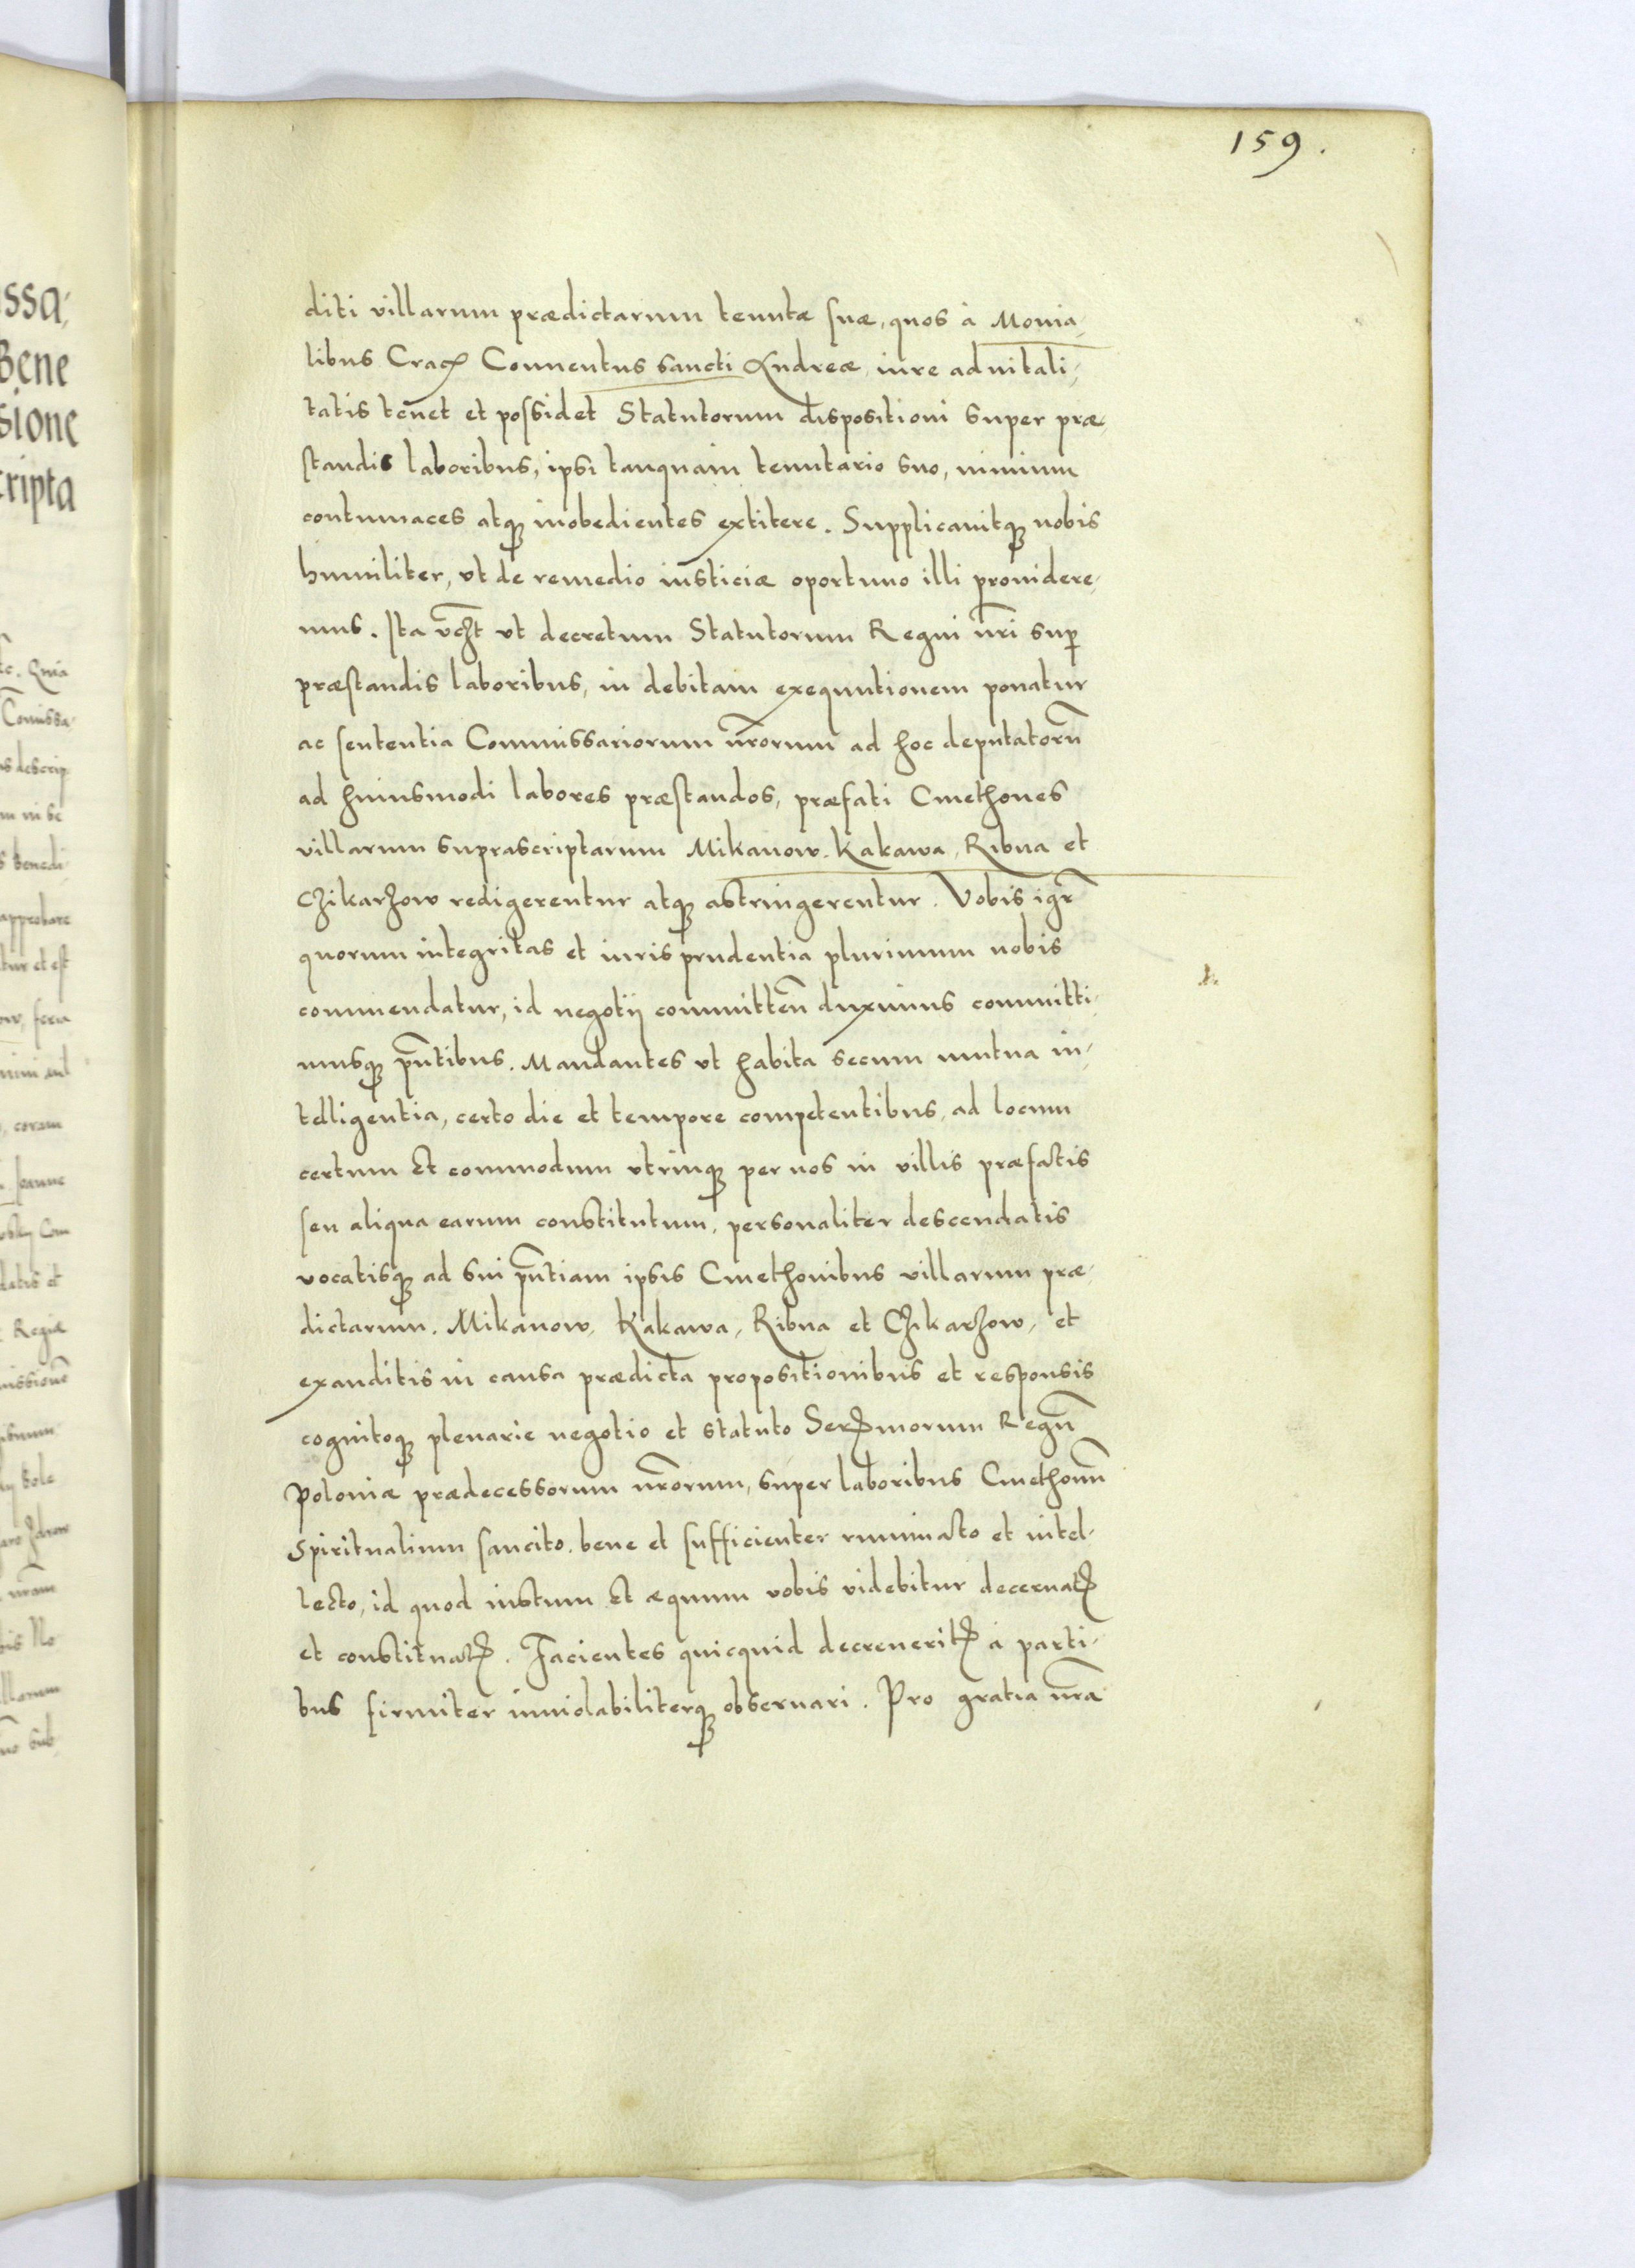 159.
diti villarum prædictarum tenutæ suæ, quos à Monia,
libus Cracȣ Conuentus sancti Andreæ iure aduitali,
tatis tenet et possidet Statutorum dispositioni super præ,
standis laboribus, ipsi tanquam tenutario suo, nimium
contumaces atqꝫ inobedientes extitere. Supplicauitqꝫ nobis
humiliter, vt de remedio iusticiæ oportuno illi prouidere,
mus. Ita vcꝫt vt decretum Statutorum Regni nr̃i sup̱
præstandis laboribus, in debitam exequutionem ponatur
ac sententia Commissariorum nr̃orum ad hoc deputatorũ
ad huiusmodi labores præstandos, præfati Cmethones
villarum suprascriptarum Mikanow. Kakawa, Ribna et
Czikarzow redigerentur atqꝫ astringerentur. Vobis igr̃
quorum integritas et iuris prudentia plurimum nobis
commendatur, id negotij committeñ duximus committi,
musqꝫ pñtibus. Mandantes vt habita secum mutua in,
telligentia, certo die et tempore competentibus, ad locum
certum et commodum vtrinqꝫ per uos in villis præfatis
seu aliqua earum constitutum, personaliter descendatis
vocatisqꝫ ad sui pñtiam ipsis Cmethonibus villarum præ,
dictarum. Mikanow, Kakawa, Ribna et Czikarzow, et
exauditis in causa prædicta propositionibus et responsis
cognitoqꝫ plenarie negotio et statuto Serꝫmorum Regũ
Poloniæ prædecessorum nr̃orum, super laboribus Cmethonũ
Spiritualium sancito. bene et sufficienter ruminato et intel-
lecto, id quod iustum et æquum vobis videbitur decernatꝫ
et constituatꝫ. Facientes quicquid decreueritꝫ à parti,
bus firmiter inuiolabiliterqꝫ obseruari. Pro gratia nr̃a
ssa,
Bene
sione
cripta